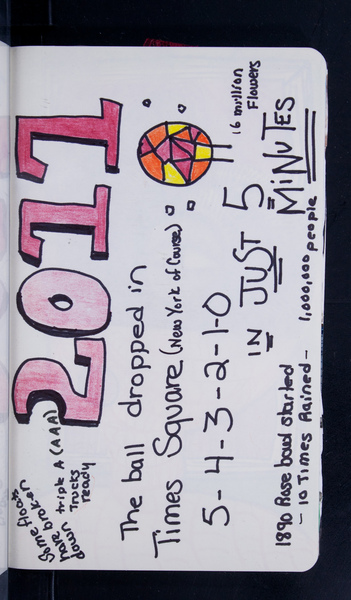 2011
Some floats
have broken
down triple A (AAA)
Trucks
ready
The ball dropped in
Times Square (New York of Course)
5-4-3-2-1-0
IN JUST 5
MiNUTES
16 million
Flowers
1890 Rose bowl started
- 10 Times Rained - 1,000,000 people